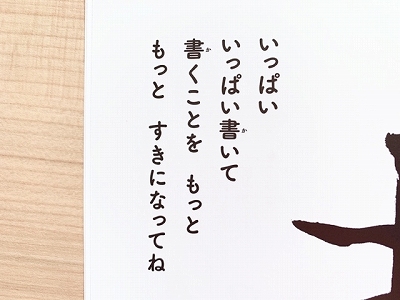 いっぱい
いっぱい書いて
書くことを　もっと
もっと　すきになってね